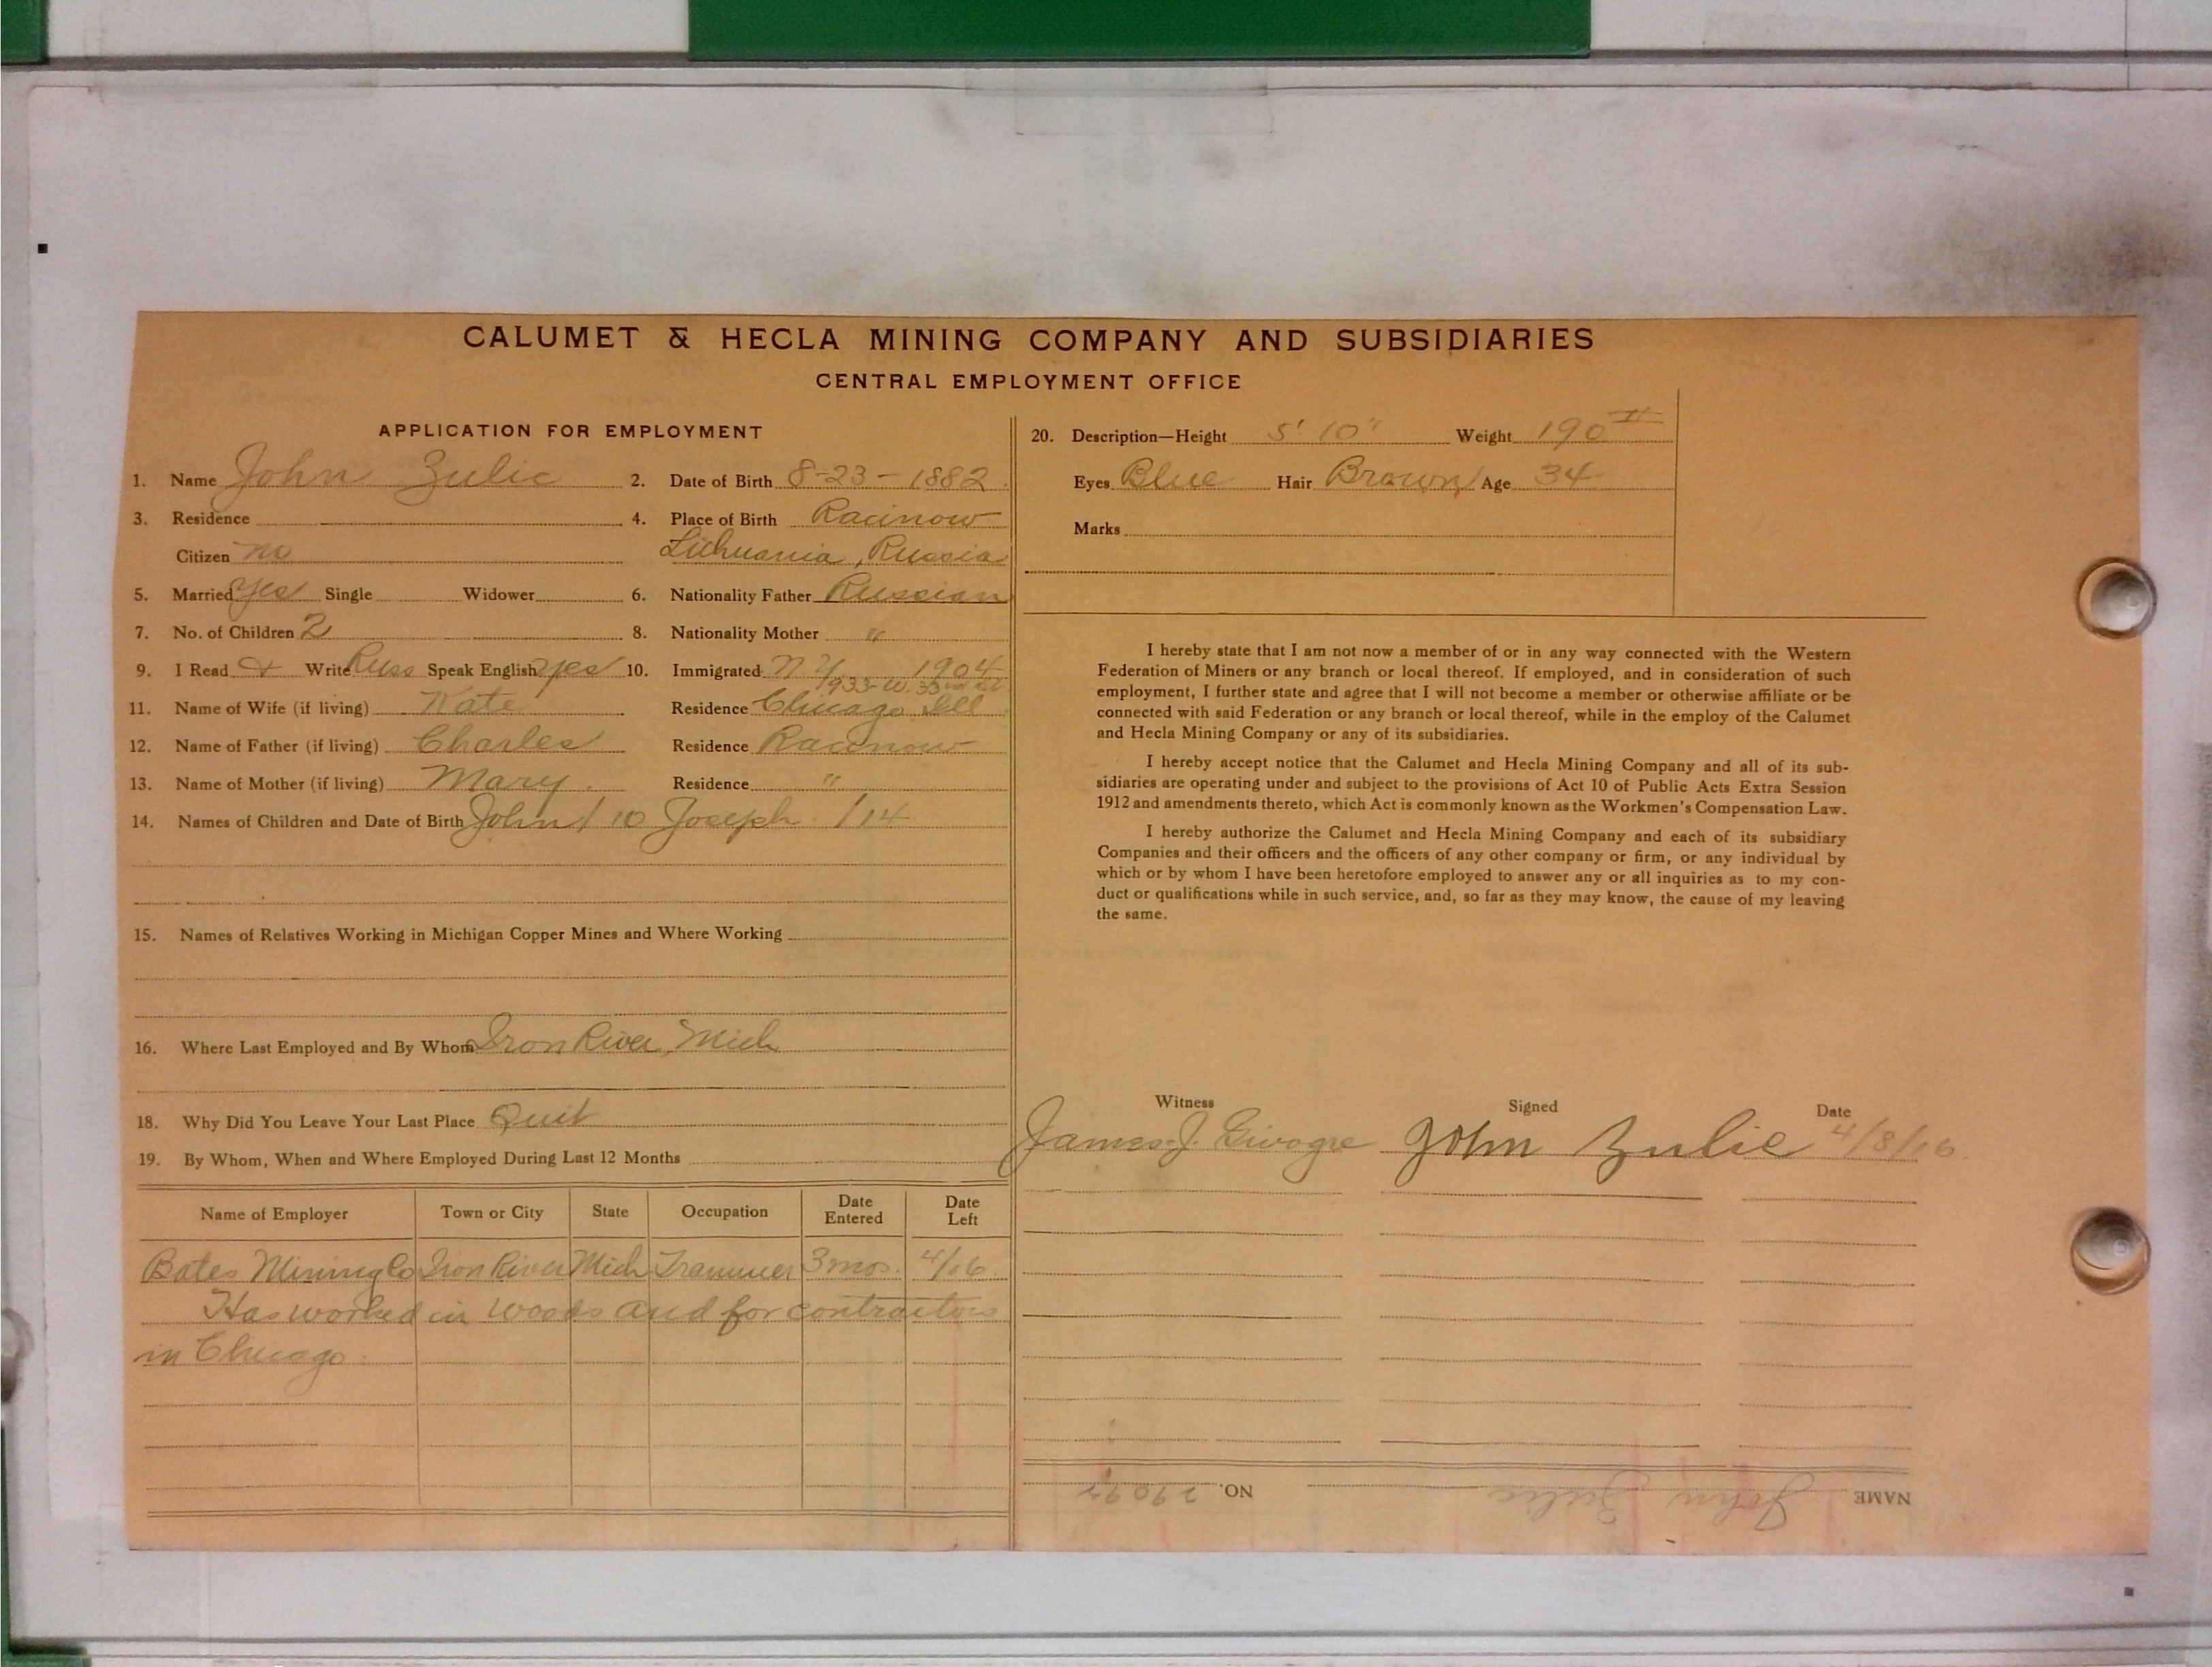 CALUMET & HECLA MINING COMPANY AND SUBSIDIARIES
CENTRAL EMPLOYMENT OFFICE
APPLICATION FOR EMPLOYMENT
1. Name John Zulic 2. Date of Birth 8-23-1882
3. Residence 4. Place of Birth Racinow
Citizen no Lithuania, Russia
5. Married yes Single Widower 6. Nationality Father Russian
7. No. of Children 2 8. Nationality Mother "
9. I Read & Write Russ Speak English yes 10. Immigrated N Y 1904
933-W. 33rd st.
11. Name of Wife (if living) Kate Residence Chicago Ill
12. Name of Father (if living) Charles Residence Racinow
13. Name of Mother (if living) Mary. Residence "
14. Names of Children and Date of Birth John / 10 Joseph / 14
15. Names of Relatives Working in Michigan Copper Mines and Where Working
16. Where Last Employed and By Whom Iron River, Mich
18. Why Did You Leave Your Last Place Quit
19. By Whom, When and Where Employed During Last 12 Months
Name of Employer Town or City State Occupation Date Entered Date Left
Bates Mining Co Iron River Mich Trammer 3 mos. 4/16.
Has worked in woods and for contractors
in Chicago.
20. Description—Height 5' 10" Weight 190 #
Eyes Blue Hair Brown Age 34
Marks
I hereby state that I am not now a member of or in any way connected with the Western
Federation of Miners or any branch or local thereof. If employed, and in consideration of such
employment, I further state and agree that I will not become a member or otherwise affiliate or be
connected with said Federation or any branch or local thereof, while in the employ of the Calumet
and Hecla Mining Company or any of its subsidiaries.
I hereby accept notice that the Calumet and Hecla Mining Company and all of its sub-
sidiaries are operating under and subject to the provisions of Act 10 of Public Acts Extra Session
1912 and amendments thereto, which Act is commonly known as the Workmen's Compensation Law.
I hereby authorize the Calumet and Hecla Mining Company and each of its subsidiary
Companies and their officers and the officers of any other company or firm, or any individual by
which or by whom I have been heretofore employed to answer any or all inquiries as to my con-
duct or qualifications while in such service, and, so far as they may know, the cause of my leaving
the same.
Witness Signed Date
James J. John Zulic 4/8/16.
NAME John Zulic NO.